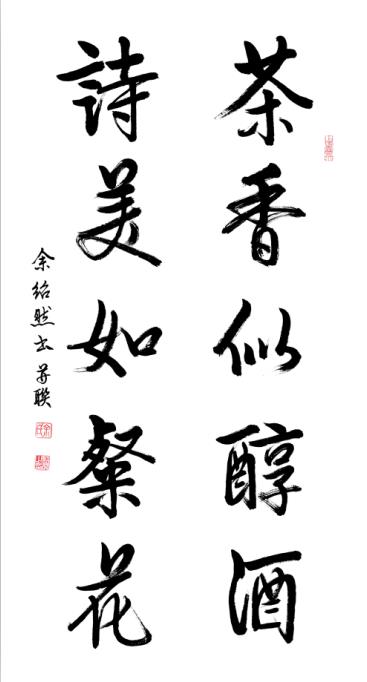 茶香似醇酒
詩美如粲花
余紹然书并聯